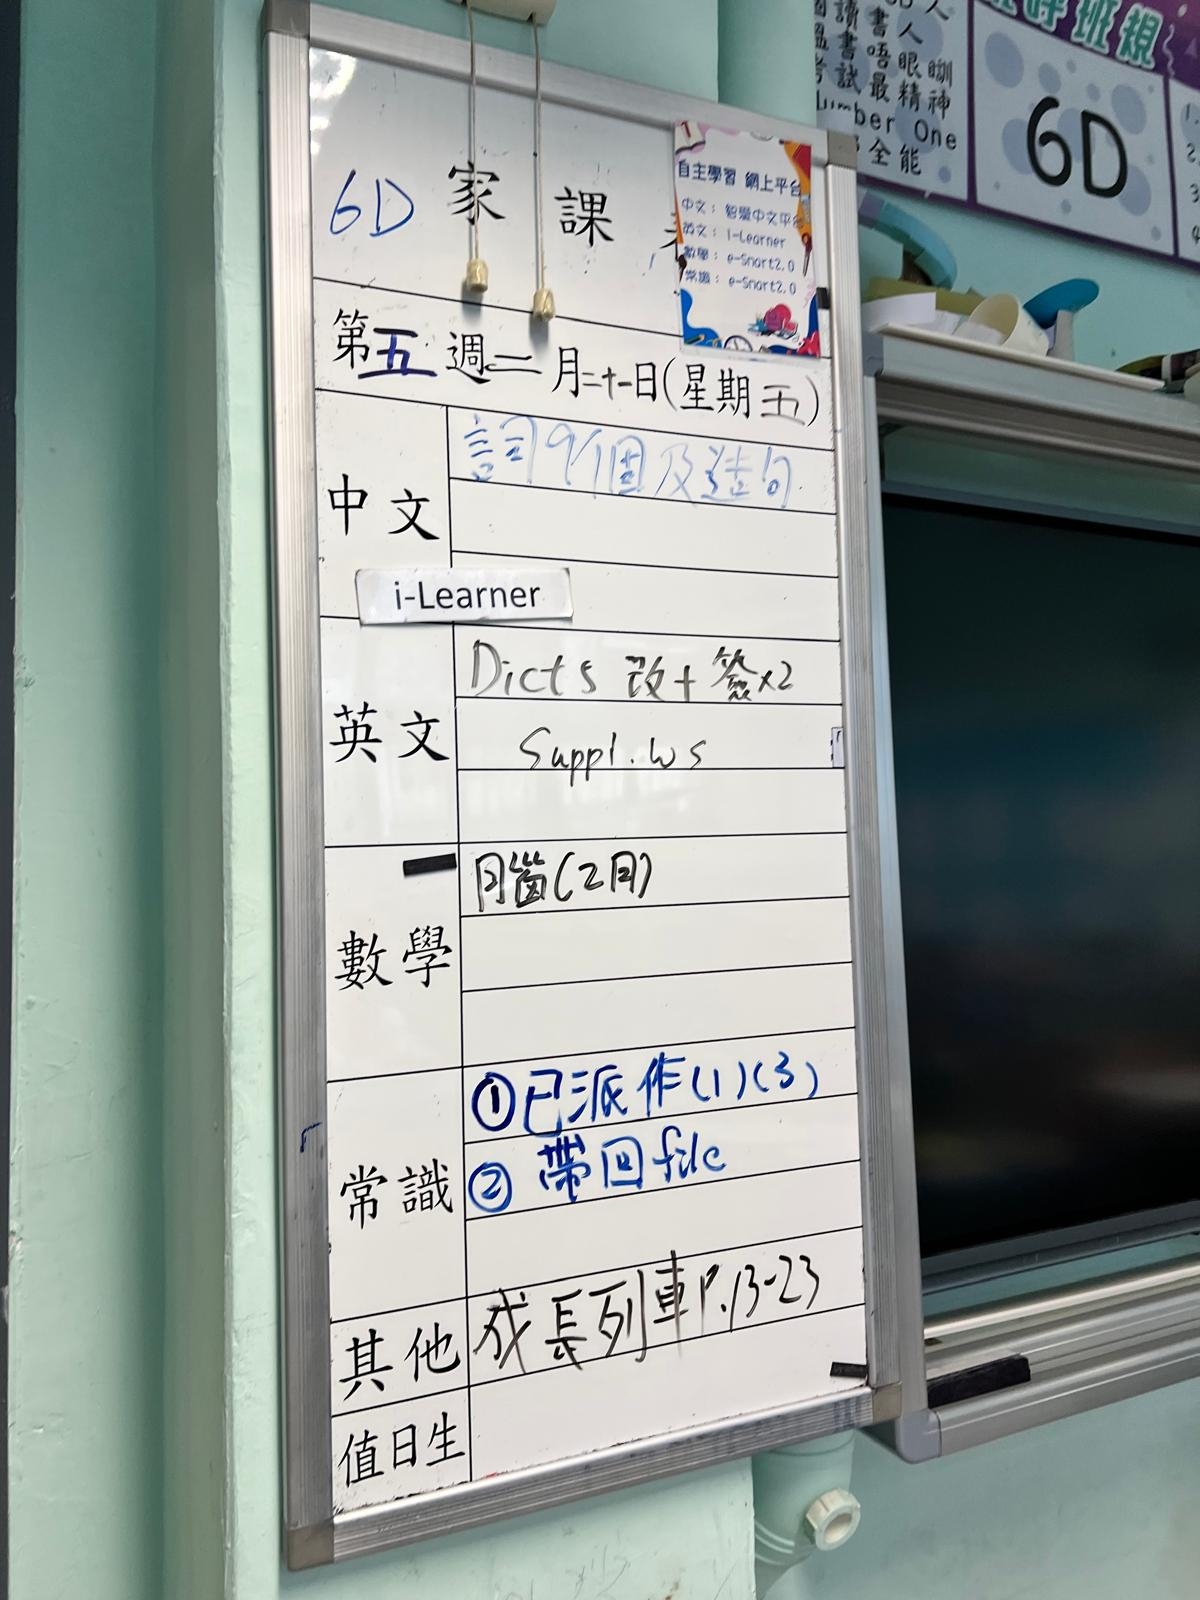 6D 家課
自主學習 網上平台
中文： 智愛中文平台
英文： i-Learner
數學： e-Smart2.0
常識： e-Smart2.0
第五週二月二十一日(星期五)
中文
詞9個及造句
i-Learner
英文
Dict 5 改+簽x2
Suppl. ws
數學
月腦(2月)
常識
①已派作(1)(3)
②帶回file
其他
成長列車P.13-23
值日生
班規
讀書人
書唔眼瞓
考試最精神
Number One
全能
6D
1.
2.
3.
4.